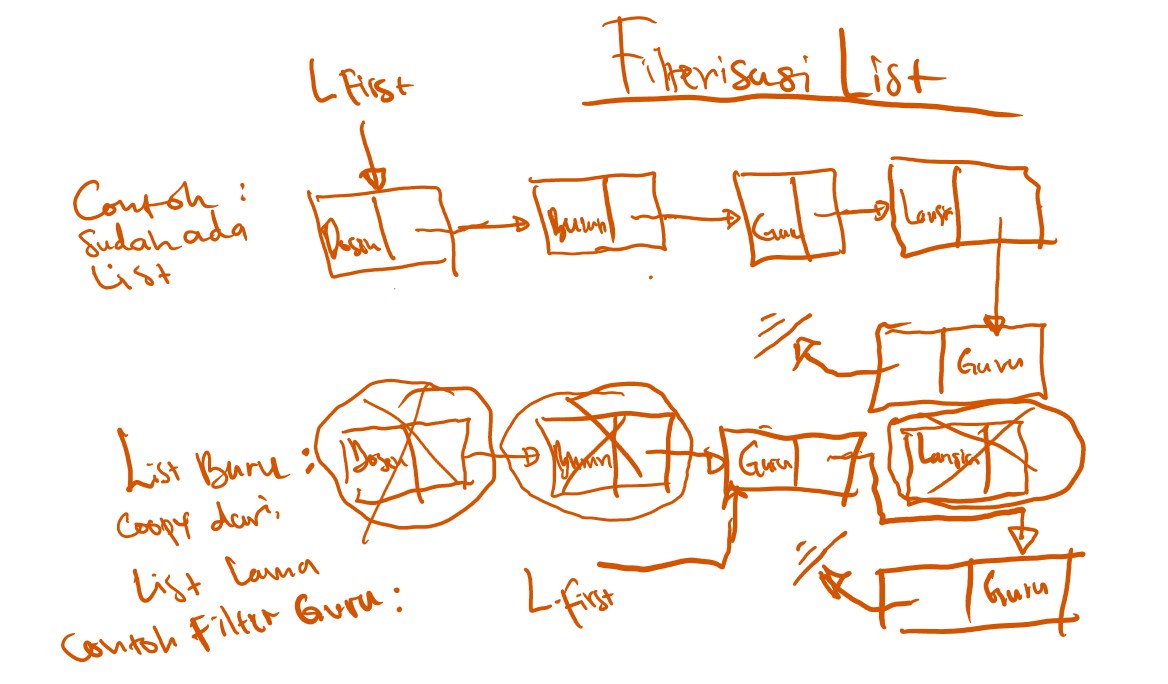 Filterisasi List
L First
Contoh :
Sudah ada
List
Dosen
Bumn
Guru
Lansia
Guru
List Buru :
Coopy dari
List Lama
Contoh Filter Guru :
Dosen
Bumn
Guru
Lansia
L.first
Guru